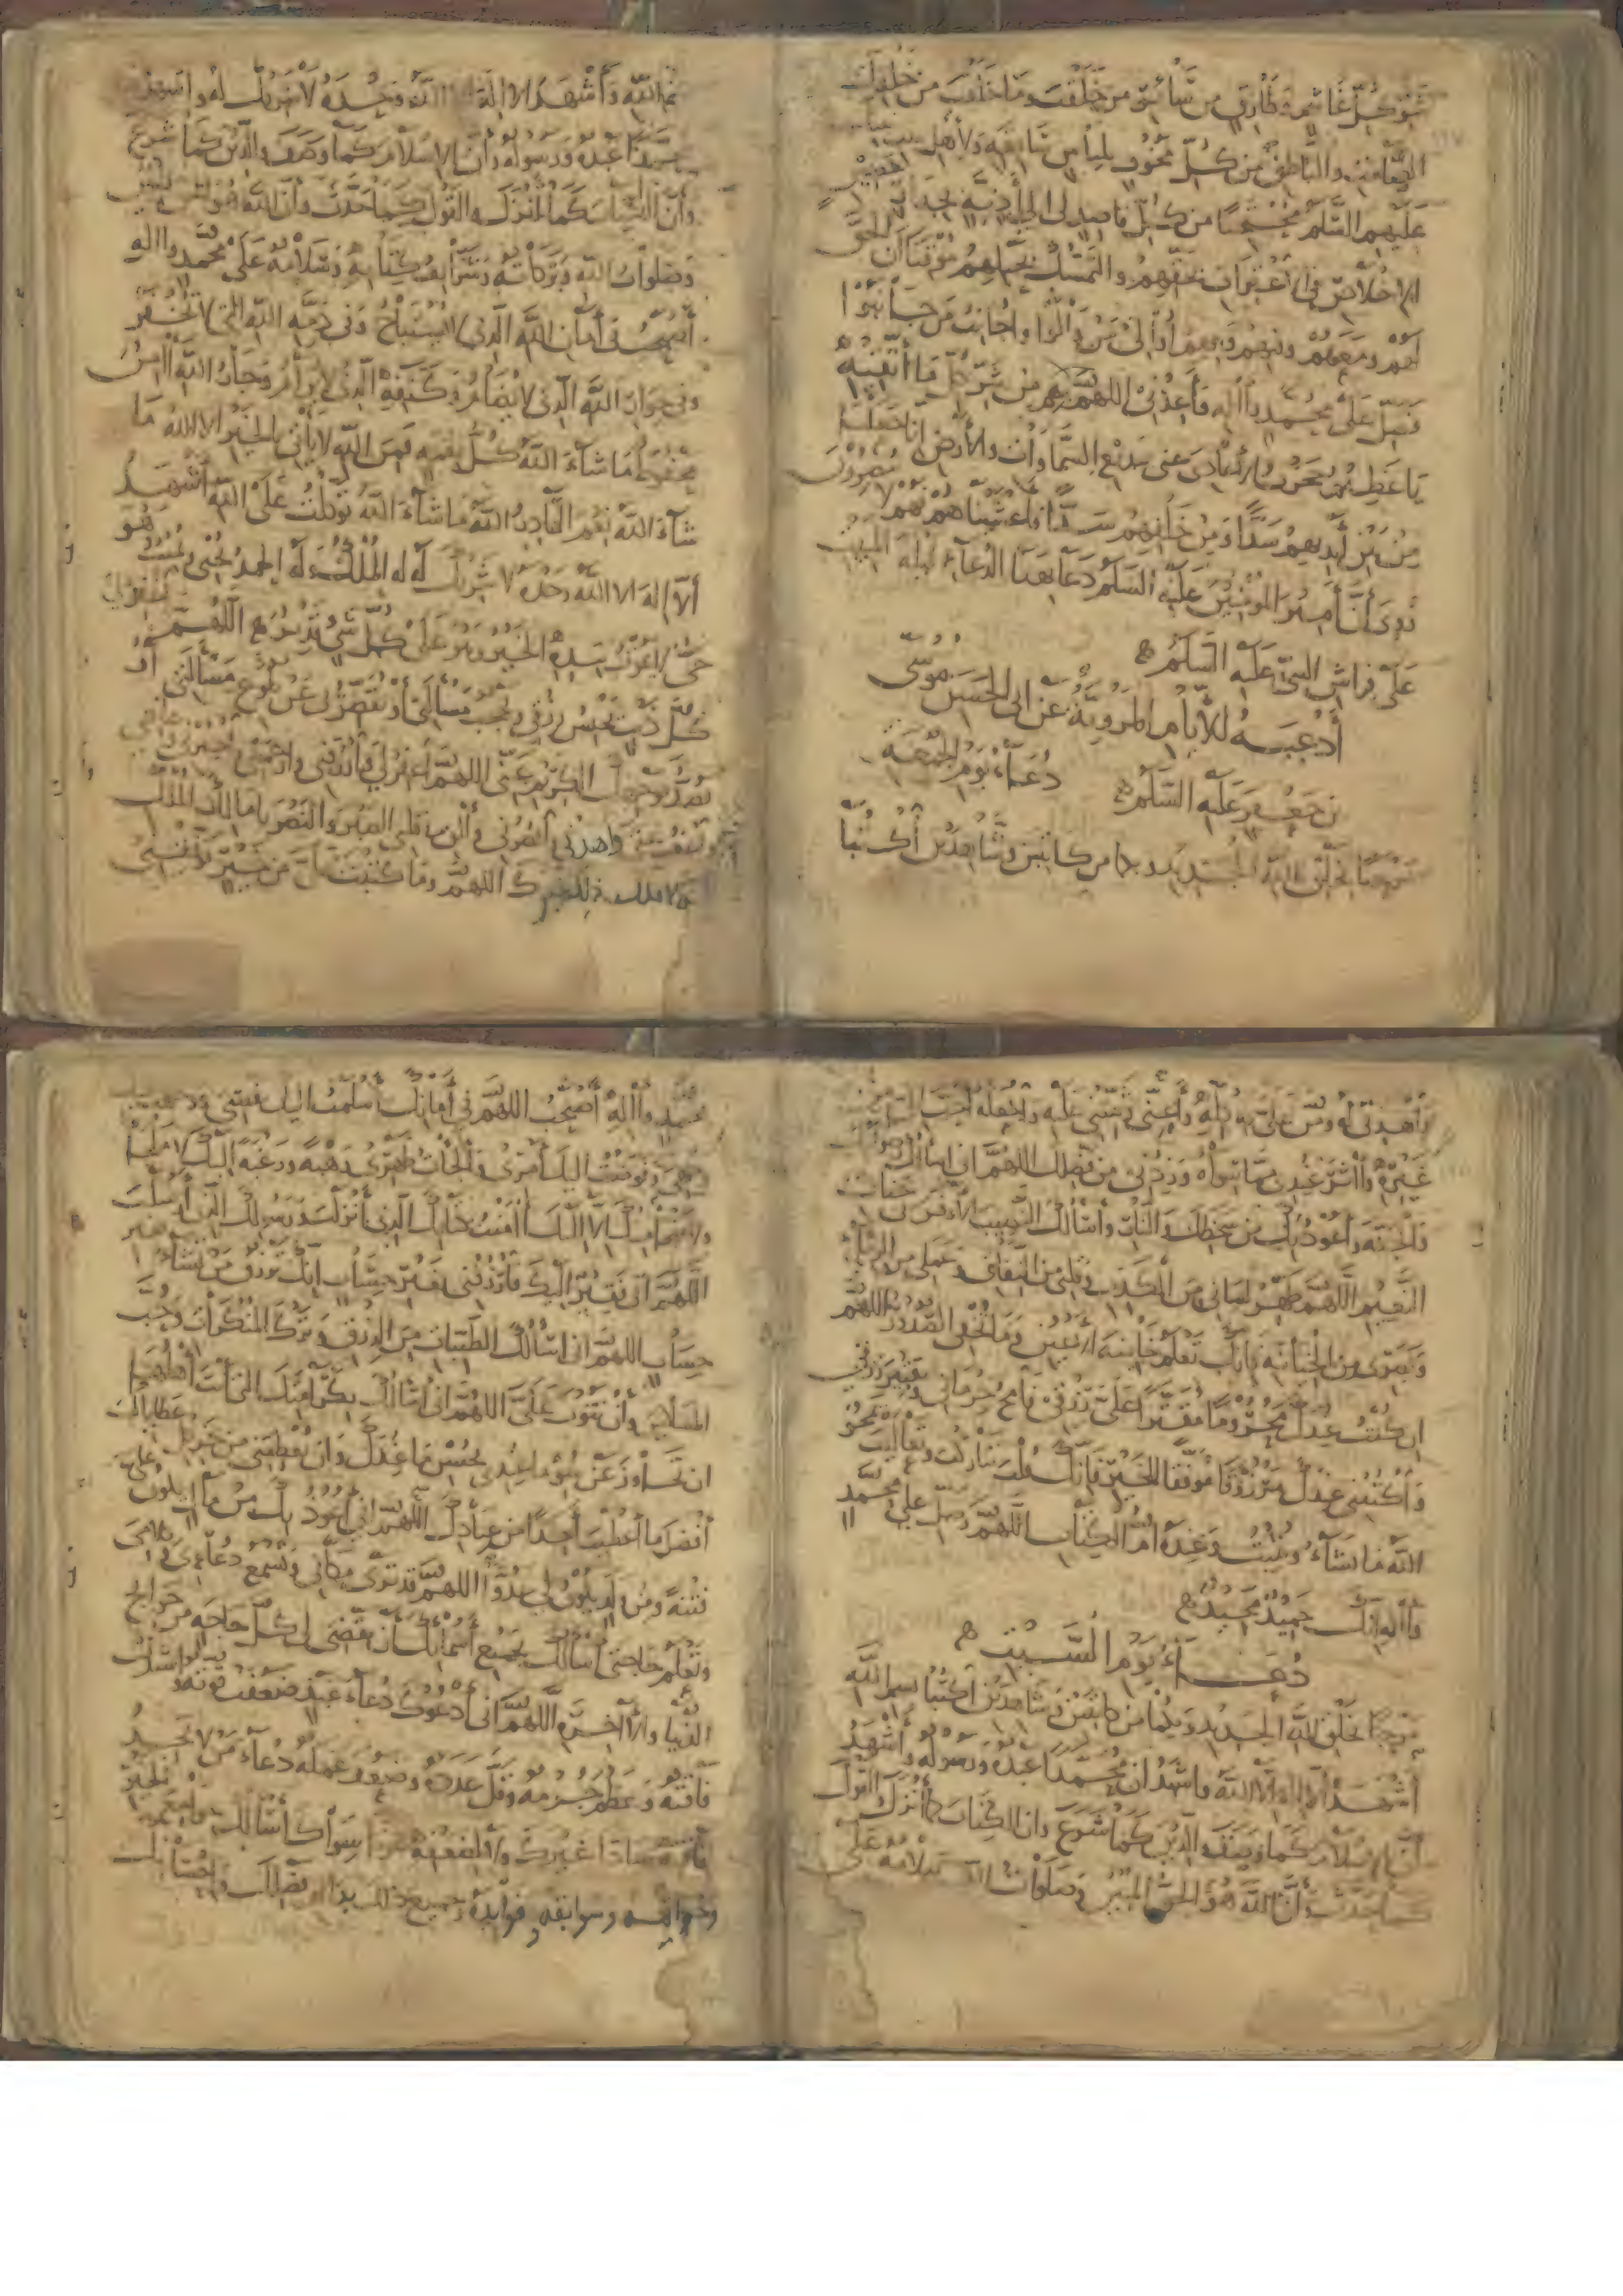 شر كل غاشم وطارق من سائر من خلقت وما خلقت من خلقك
الصامت والناطق من كل مخوف بلباس سابغة ولاء أهل بيت
عليهم السلم محتجبا من كل قاصد لي الى أذية بجدار حصين
الاخلاص في الاعتراف بحقهم والتمسك بحبلهم موقنا أن الحق
لهم ومعهم وفيهم وبهم أوالي من والوا وأجانب من جانبوا
فصل على محمد وآله فأعذني اللهم بهم من شر كل ما أتقيه
يا عظيم حجزت الأعادي عني ببديع السموات والأرض انا جعلنا
من بين أيديهم سدا ومن خلفهم سدا فأغشيناهم فهم لا يبصرون
روي أن أمير المؤمنين عليه السلم دعا بهذا الدعاء ليلة المبيت
على فراش النبي عليه السلم
أدعية للأيام المروية عن أبي الحسن موسى
بن جعفر عليه السلم دعاء يوم الجمعة
مرحبا بخلق الله الجديد وبكما من كاتبين وشاهدين أكتبا
بسم الله وأشهد ألا إله إلا الله وحده لا شريك له واشهد أن
محمدا عبده ورسوله وأن الاسلام كما وصف والدين كما شرع
وأن الكتاب كما أنزل والقول كما حدث وأن الله هو الحق المبين
وصلوات الله وبركاته وشرائف تحياته وسلامه على محمد وآله
أصبحت في أمان الله الذي لا يستباح وفي ذمة الله التي لا تخفر
وفي جوار الله الذي لا يضام وكنفه الذي لا يرام وجار الله آمن
محفوظ ما شاء الله كل نعمة فمن الله لا يأتي بالخير إلا الله ما
شاء الله نعم القادر الله ما شاء الله توكلت على الله أشهد
ألا إله الا الله وحده لا شريك له له الملك وله الحمد يحيي ويميت وهو
حي لا يموت بيده الخير وهو على كل شيء قدير اللهم اغفر لي
كل ذنب يحبس رزقي ويحجب مسألتي أو يقصر بي عن بلوغ مسألتي أو
يصد بوجهك الكريم عني اللهم اغفر لي وارزقني وارحمني واجبرني وعافني
واعف عني واهدني وانصرني وألق في قلبي الصبر والنصر يا مالك الملك
فانه لا يملك ذلك غيرك اللهم وما كتبت علي من خير فوفقني
واهدني له ومن علي به كله وأعني وثبتني عليه واجعله أحب الي من
غيره وآثر عندي مما سواه وزدني من فضلك اللهم اني اسألك رضوانك
والجنة وأعوذ بك من سخطك والنار وأسألك النصيب الأوفر في جنات
النعيم اللهم طهر لساني من الكذب وقلبي من النفاق وعملي من الرياء
وبصري من الخيانة فانك تعلم خائنة الأعين وما تخفي الصدور اللهم
ان كنت عندك محروما مقترا علي رزقي فامح حرماني وتقتير رزقي
واكتبني عندك مرزوقا موفقا للخير فانك قلت تباركت وتعاليت يمحو
الله ما يشاء ويثبت وعنده أم الكتاب اللهم وصل على محمد
وآله انك حميد مجيد
دعاء يوم السبت
مرحبا بخلق الله الجديد وبكما من كاتبين وشاهدين أكتبا بسم الله
أشهد ألا إله إلا الله واشهد ان محمدا عبده ورسوله وأشهد
أن الاسلام كما وصف والدين كما شرع وان الكتاب كما أنزل والقول
كما حدث وأن الله هو الحق المبين وصلوات الله وسلامه على
محمد وآله أصبحت اللهم في أمانك أسلمت اليك نفسي ووجهت
وجهي وفوضت اليك أمري وألجأت ظهري رهبة ورغبة اليك لا ملجأ
ولا منجا منك الا اليك آمنت بكتابك الذي أنزلت ورسولك الذي أرسلت
اللهم اني فقير اليك فارزقني بغير حساب انك ترزق من تشاء بغير
حساب اللهم اني اسألك الطيبات من الرزق وترك المنكرات وحب
المساكين وأن تتوب علي اللهم اني أسألك بكرامتك التي أنت أهلها
ان تجاوز عن سوء ما عندي بحسن ما عندك وان تعطيني من جزيل عطائك
أفضل ما أعطيت أحدا من عبادك اللهم اني أعوذ بك من مال يكون علي
فتنة ومن ولد يكون لي عدوا اللهم قد ترى مكاني وتسمع دعائي وكلامي
وتعلم حاجتي أسألك بجميع أسمائك أن تقضي لي كل حاجة من حوائج
الدنيا والآخرة اللهم اني أدعوك دعاء عبد ضعفت قوته واشتدت
فاقته وعظم جرمه وقل عذره وضعف عمله دعاء من لا يجد
لفاقته سادا غيرك ولا لضعفه عونا سواك أسألك جوامع الخير
وخواتمه وسوابقه وفوائده وجميع ذلك بدوام فضلك واحسانك